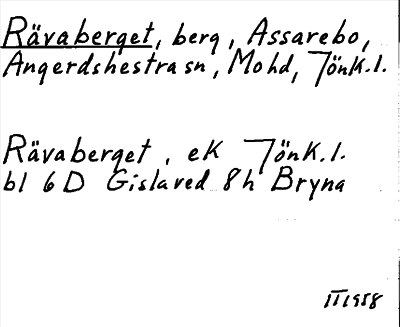 Rävaberget, berg, Assarebo,
Angerdshestra sn, Mohd, Jönk.l.
Rävaberget, ek Jönk.l.
bl 6D Gislaved 8h Bryna
III 1958